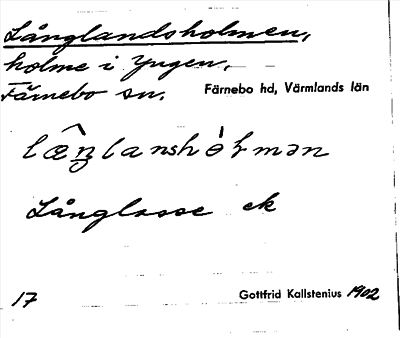 Långlandsholmen,
holme i Yngen,
Färnebo sn. Färnebo hd, Värmlands län
Långlosse ek
17 Gottfrid Kallstenius 1902